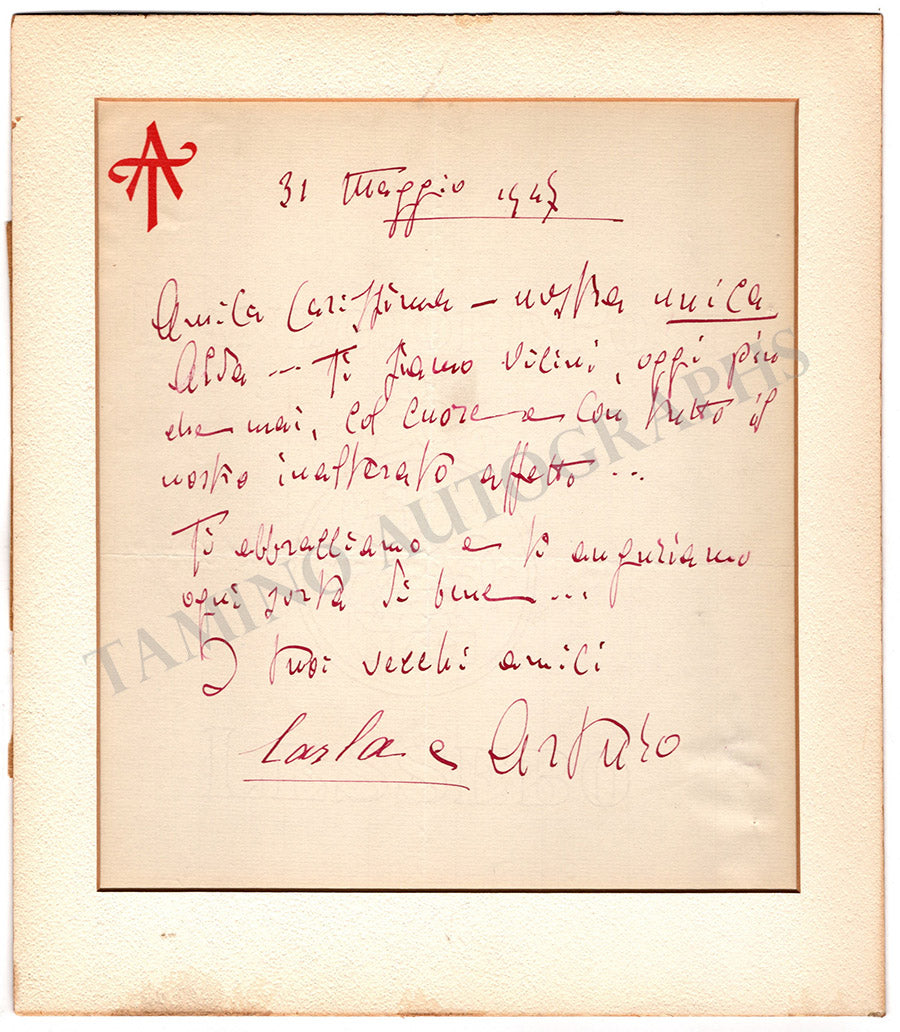 AT
31 Maggio 1947
Amica Carissima – nostra unica
Alda – Ti siamo vicini, oggi più
che mai, col cuore e con tutto il
nostro inalterato affetto...
Ti abbracciamo e ti auguriamo
ogni sorta di bene...
I tuoi vecchi amici
Carla e Arturo
TAMINO AUTOGRAPHS